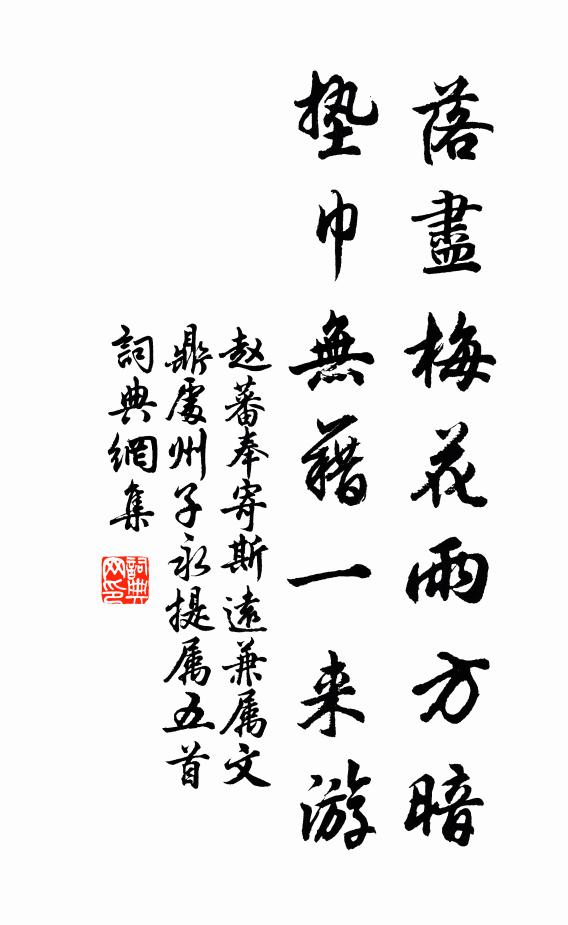 落盡梅花雨方暗
墊巾無藉一来游
赵蕃奉寄斯遠兼属文
鼎處州子永提属五首
詞典網集
詞典网印